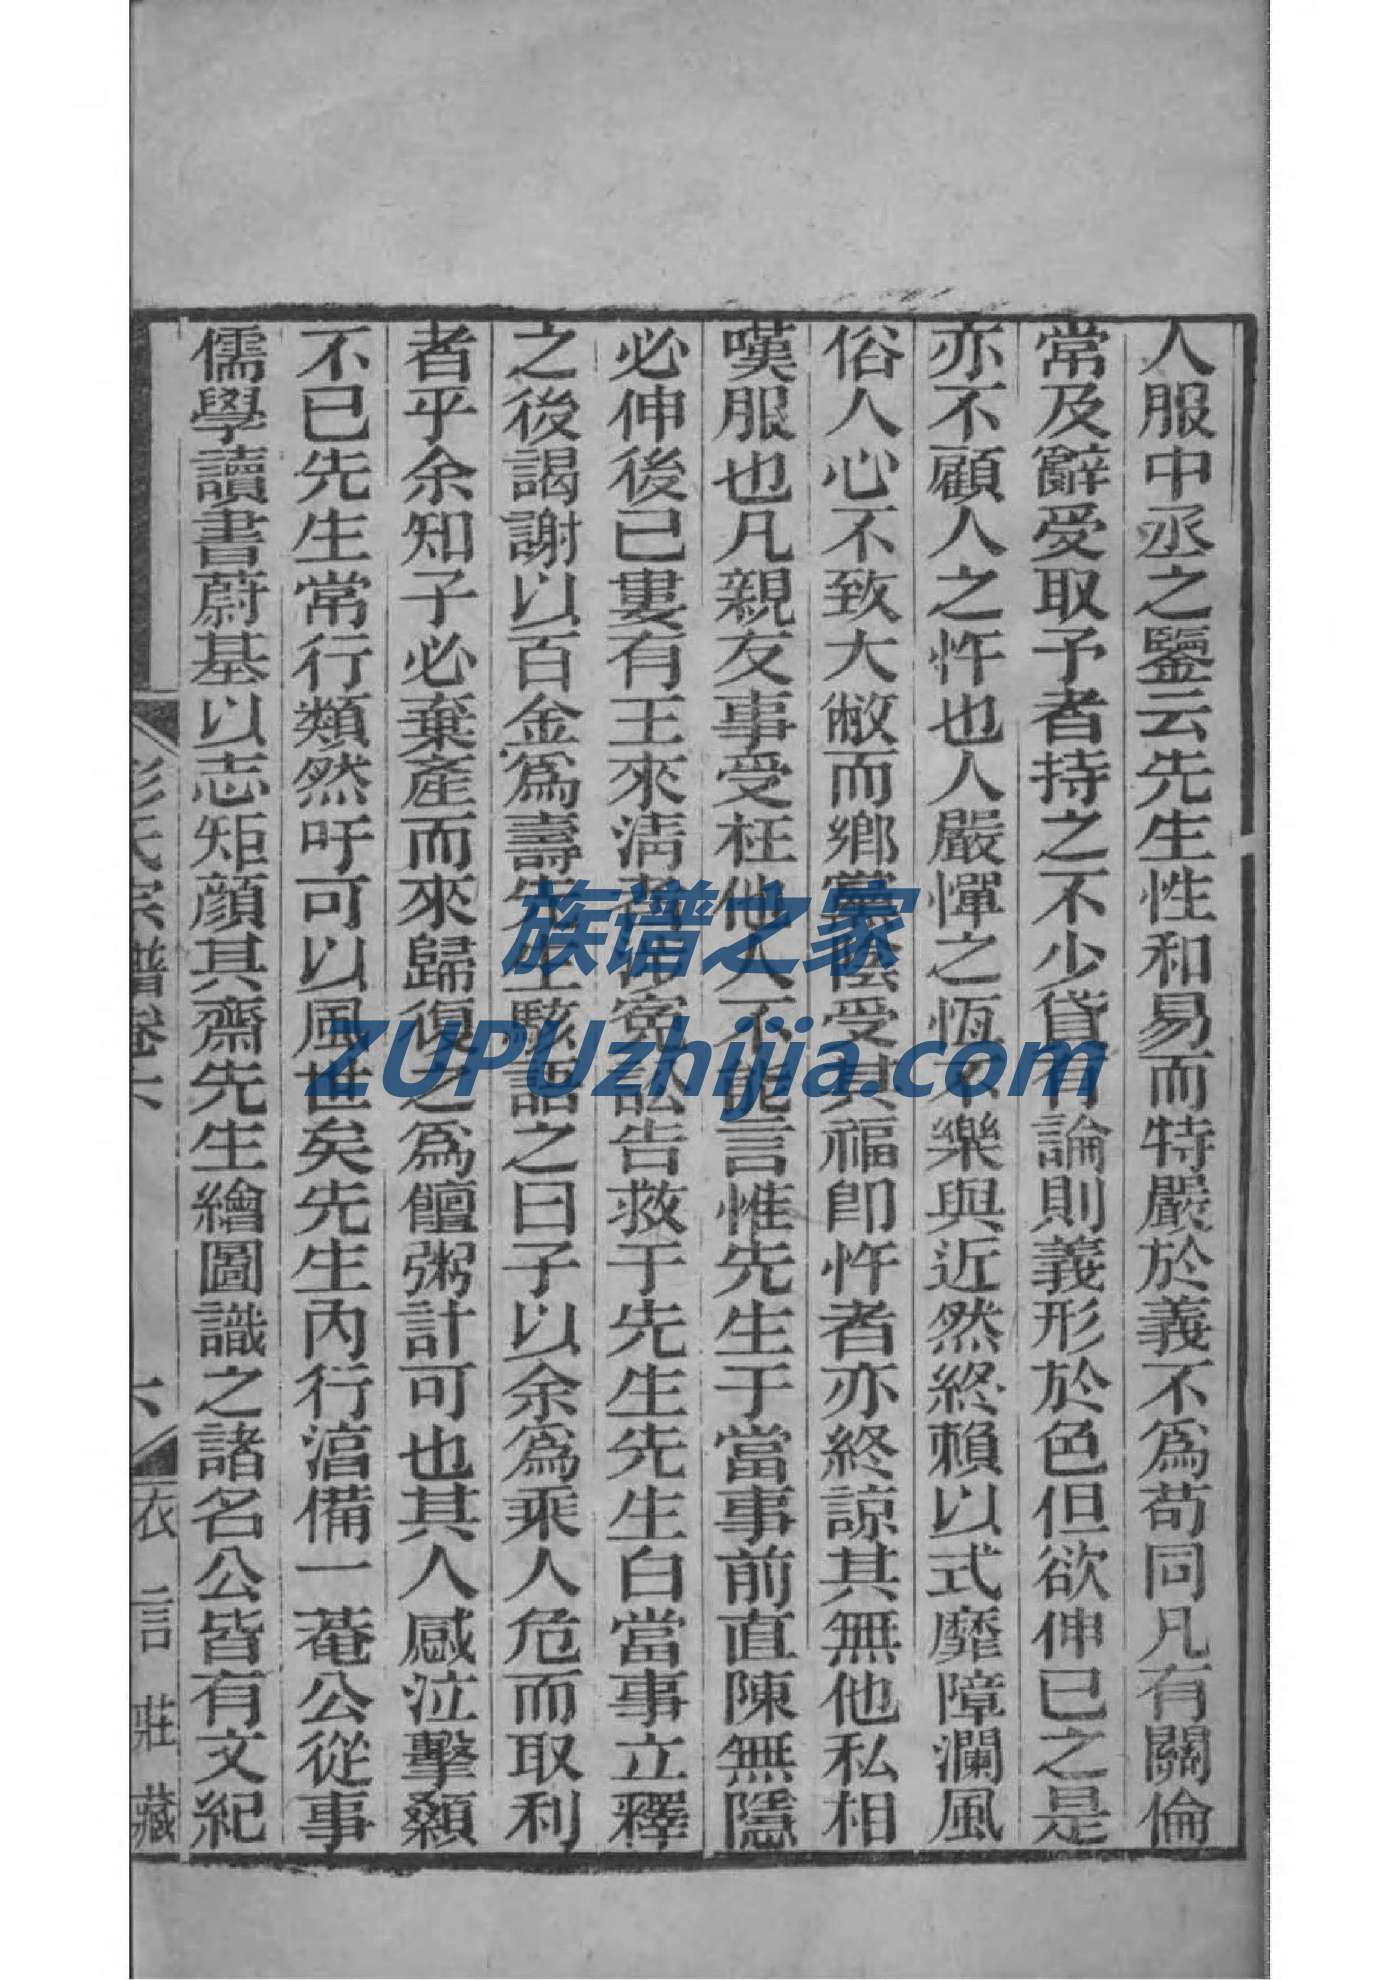 人服中丞之鑒云先生性和易而特嚴於義不爲苟同凡有關倫
常及辭受取予者持之不少貸有論則義形於色但欲伸已之是
亦不顧人之忤也人嚴憚之恆不樂與近然終賴以式靡障瀾風
俗人心不致大敝而鄉黨陰受其福卽忤者亦終諒其無他私相
嘆服也凡親友事受枉他人不能言惟先生于當事前直陳無隱
必伸後已婁有王來淸者涉寃訟告救于先生先生白當事立釋
之後謁謝以百金爲壽先生駭詬之曰子以余爲乘人危而取利
者乎余知子必棄產而來歸復之爲饘粥計可也其人感泣擊顙
不已先生常行類然吁可以風世矣先生內行淳備一菴公從事
儒學讀書蔚基以志矩顏其齋先生繪圖識之諸名公皆有文紀
彭氏宗譜卷六 六 衣言莊藏
族谱之家
ZUPUzhijia.com